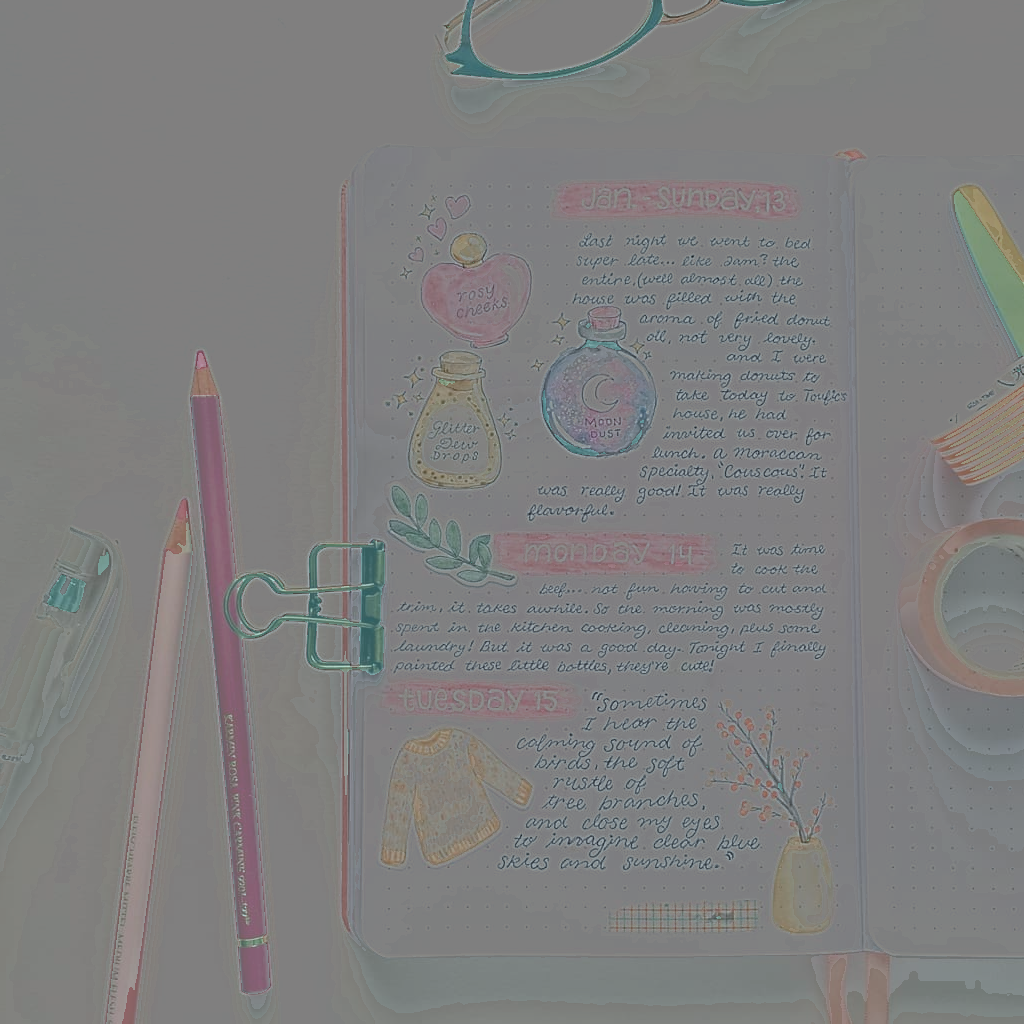 Jan - Sunday 13
Last night we went to bed
super late... like 2am? the
entire, (well almost all) the
house was filled with the
aroma of fried donut
oil, not very lovely.
and I were
making donuts to
take today to Toufic's
house, he had
invited us over for
lunch. A Moraccan
specialty, "Couscous". It
was really good! It was really
flavorful.
rosy
cheeks
Glitter
Dew
Drops
MOON
DUST
monday 14
It was time
to cook the
beef... not fun having to cut and
trim, it takes awhile. So the morning was mostly
spent in the kitchen cooking, cleaning, plus some
laundry! But it was a good day. Tonight I finally
painted these little bottles, they're cute!
tuesday 15
"Sometimes
I hear the
calming sound of
birds, the soft
rustle of
tree branches,
and close my eyes
to imagine clear blue
skies and sunshine."